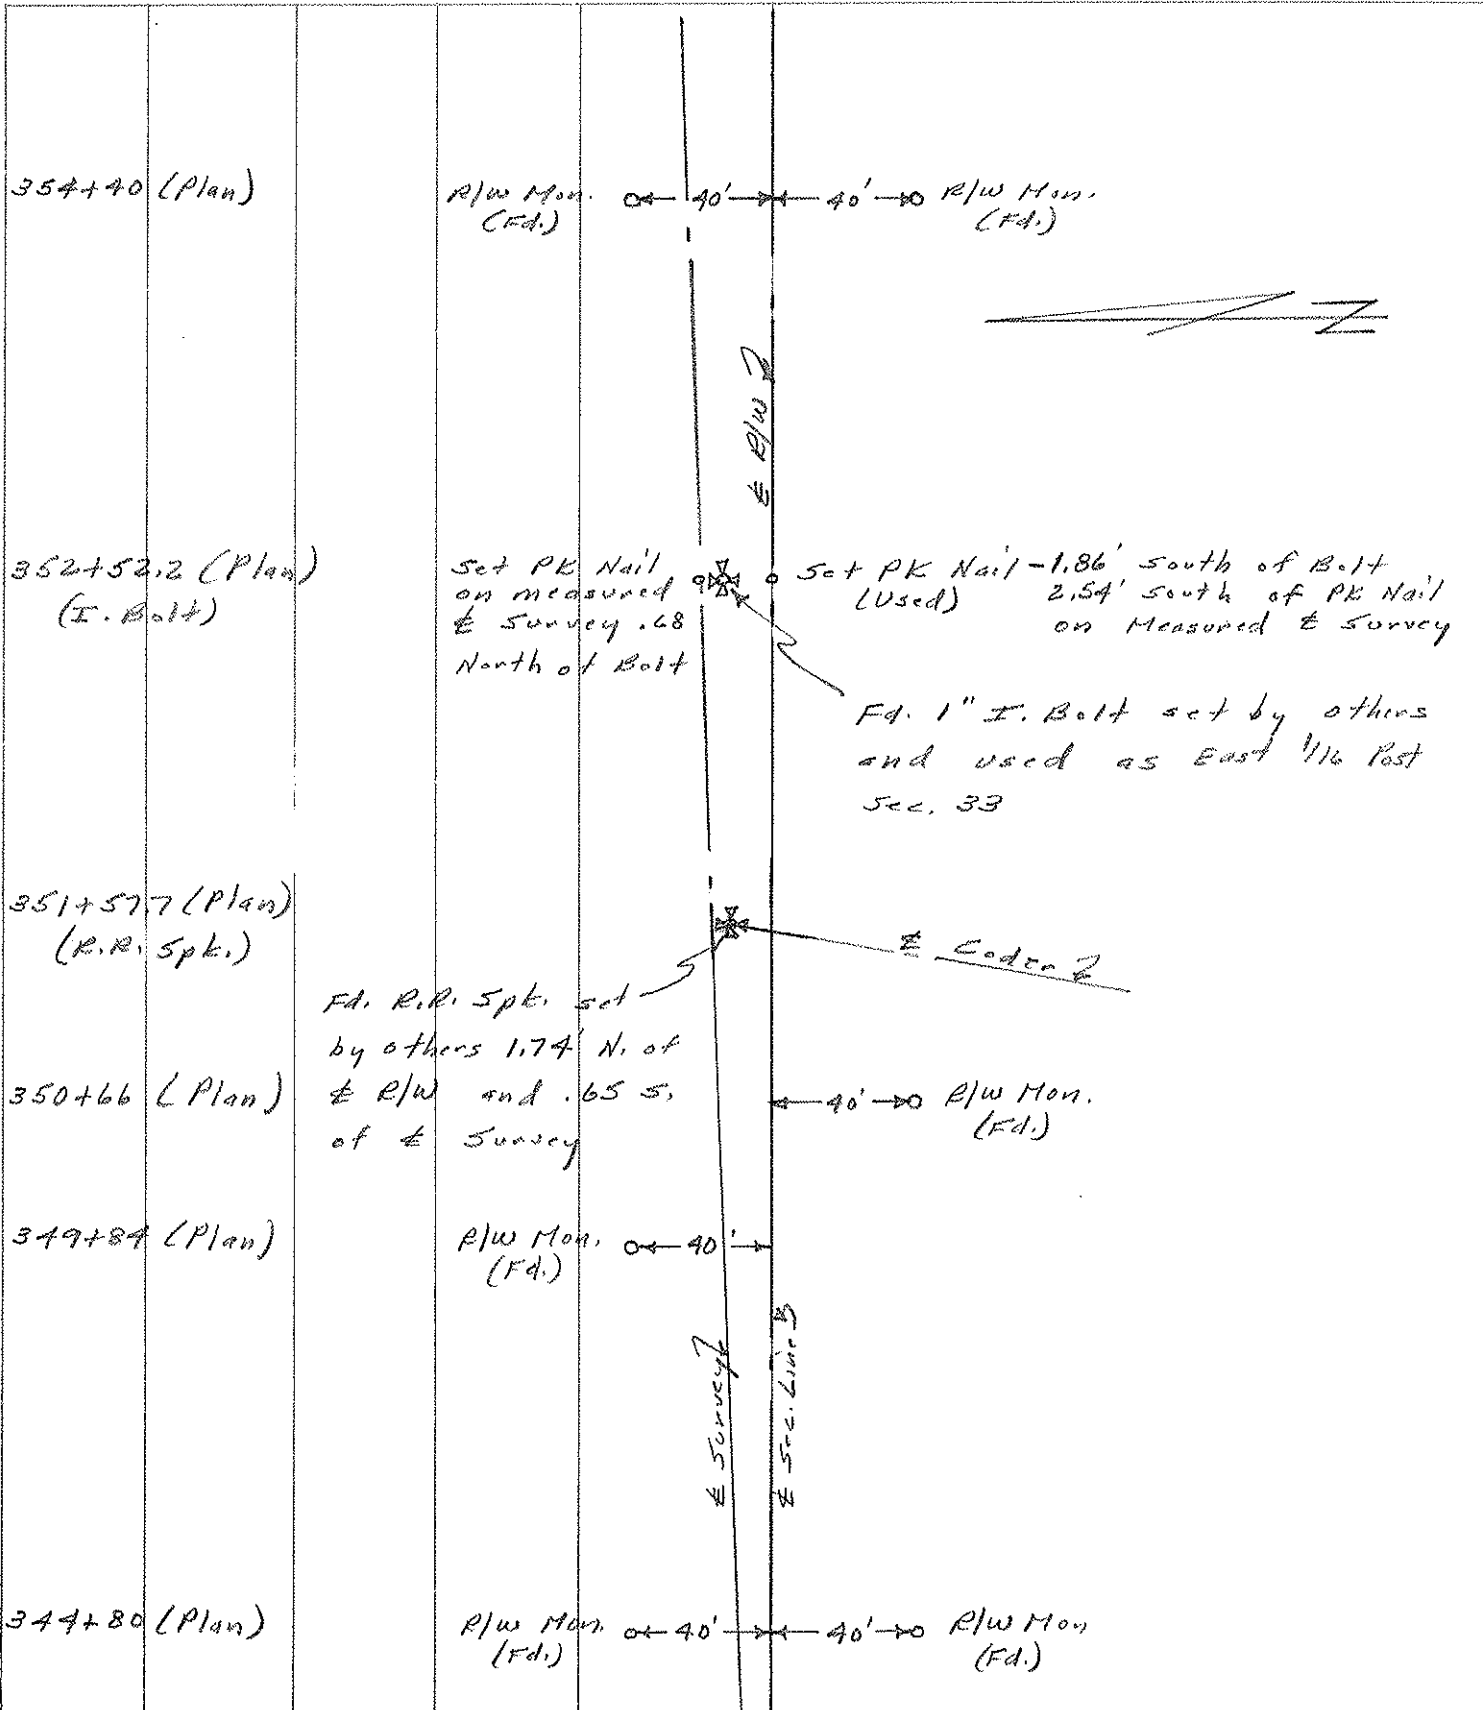 354+40 (Plan)
R/W Mon.
(Fd.)
40'
40'
R/W Mon.
(Fd.)
N
℄ R/W
352+52.2 (Plan)
(I. Bolt)
Set PK Nail
on measured
℄ Survey .68
North of Bolt
Set PK Nail - 1.86' South of Bolt
(Used) 2.54' South of PK Nail
on Measured ℄ Survey
Fd. 1" I. Bolt set by others
and used as East 1/16 Post
Sec. 33
351+57.7 (Plan)
(R.R. Spk.)
℄ Coder
Fd. R.R. Spk. set
by others 1.74' N. of
℄ R/W and .65 S.
of ℄ Survey
350+66 (Plan)
40'
R/W Mon.
(Fd.)
349+84 (Plan)
R/W Mon.
(Fd.)
40'
℄ Survey
℄ Sec. Line
344+80 (Plan)
R/W Mon.
(Fd.)
40'
40'
R/W Mon
(Fd.)